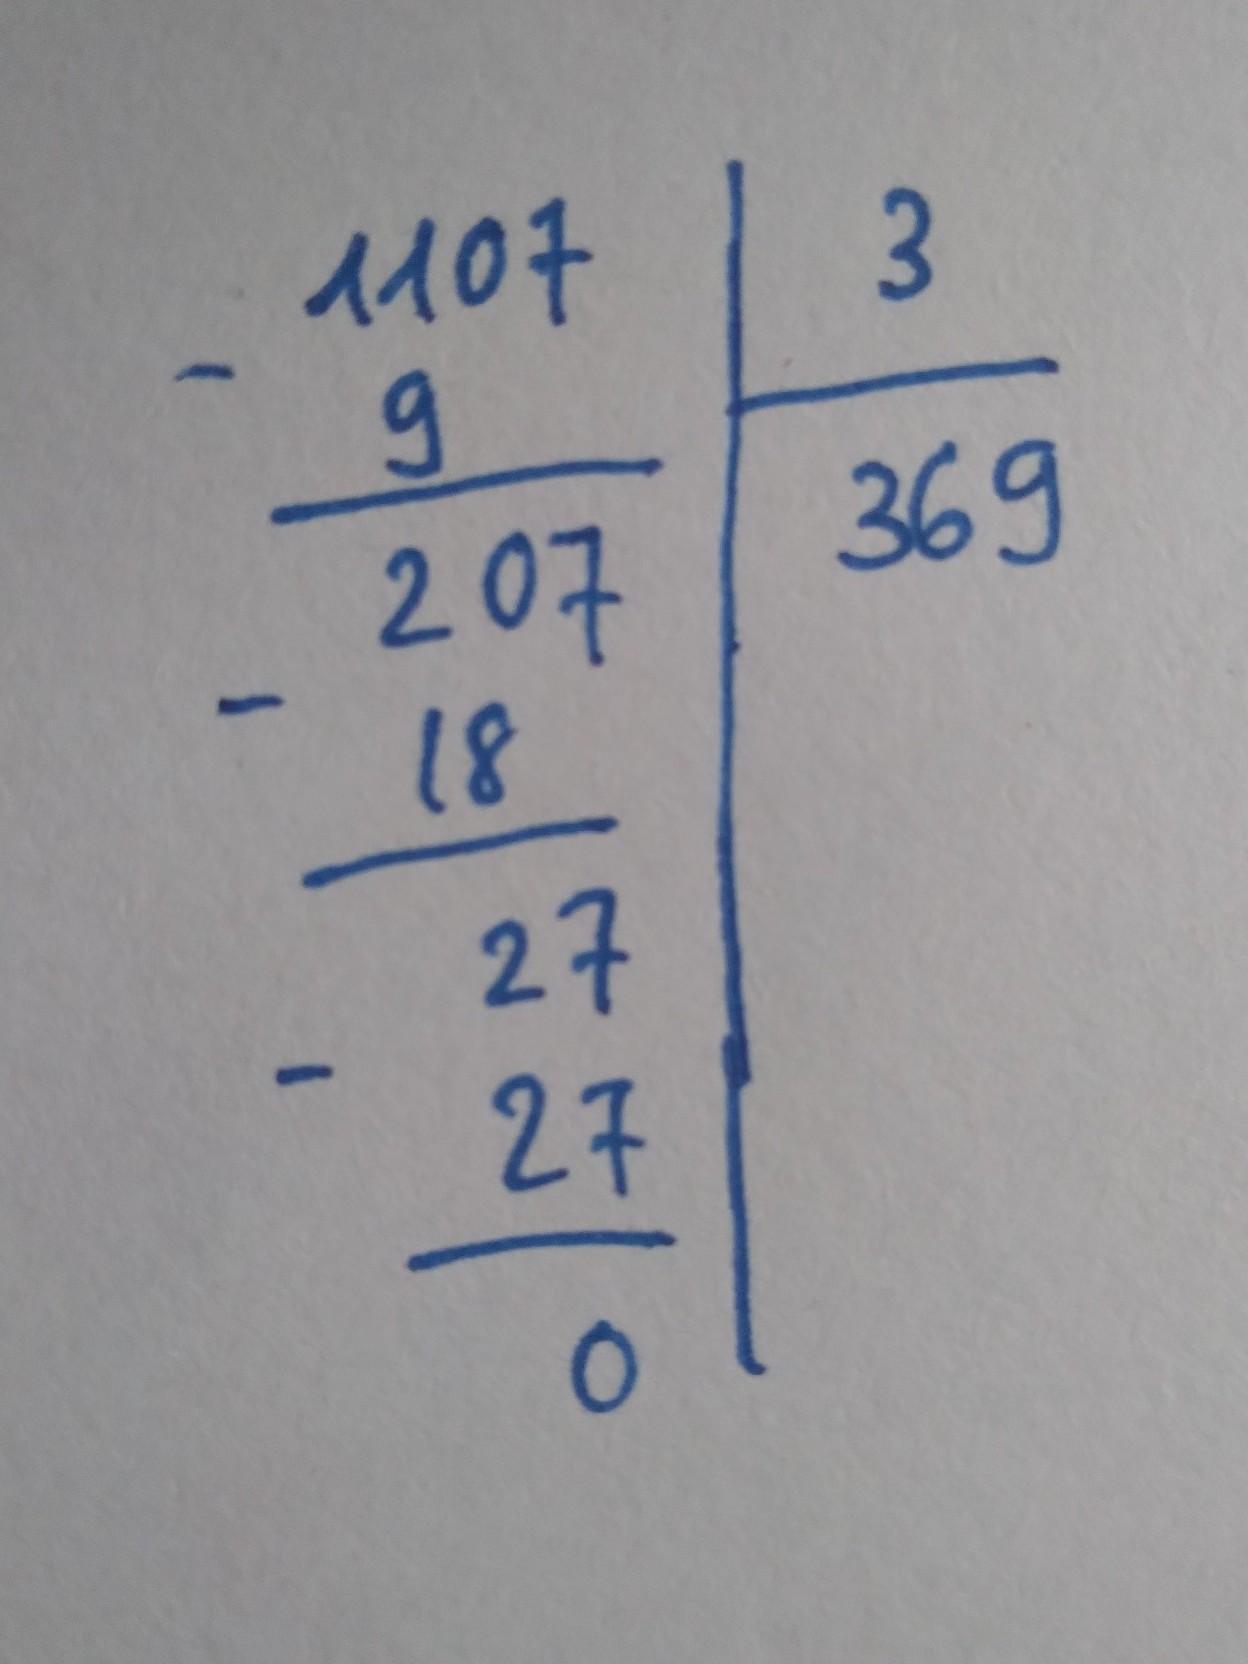 1107 3
- 9
369
207
- 18
27
- 27
0